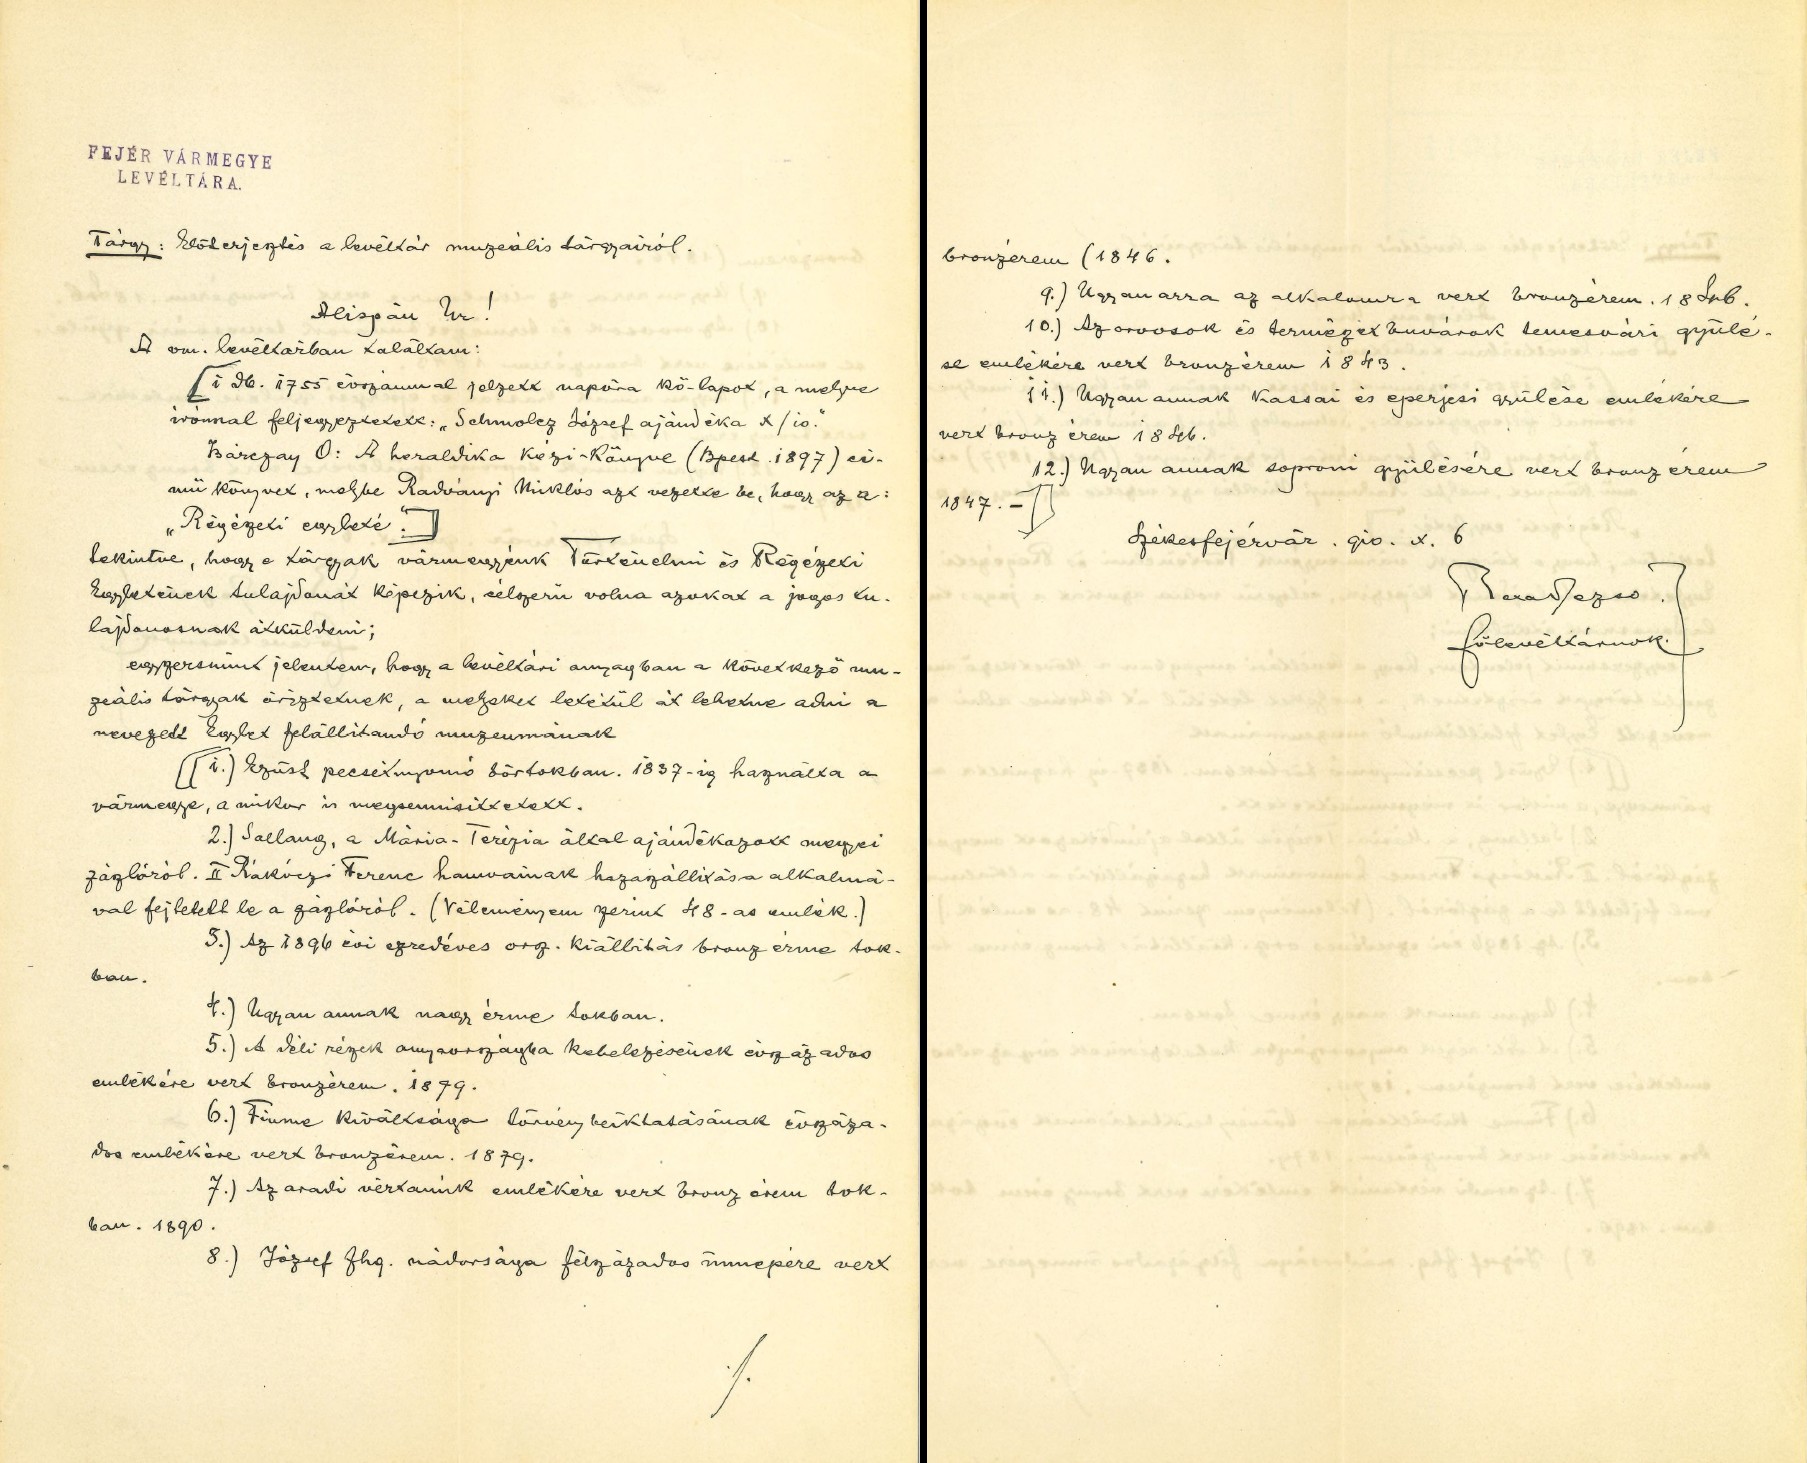 FEJÉR VÁRMEGYE
LEVÉLTÁRA.
Tárgy: Előterjesztés a levéltár muzeális tárgyairól.
Alispán Ur!
A vm. levéltárban találtam:
[1 db. 1755 évszámmal jelzett napóra kő-lapot, a melyre
irónnal feljegyeztetett: „Schmolcz József ajándéka X/10."
Bárczay O: A heraldika kézi-könyve (Bpest. 1897) ci-
mü könyvet, melybe Radványi Miklós azt vezette be, hogy az a:
„Régészeti egyleté".]
tekintve, hogy e tárgyak vármegyénk Történelmi és Régészeti
Egyletének tulajdonát képezik, célszerü volna azokat a jogos tu-
lajdonosnak átküldeni;
egyszersmint jelentem, hogy a levéltári anyagban a következő mu-
zeális tárgyak őriztetnek, a melyeket letétül át lehetne adni a
nevezett Egylet felállitandó muzeumának
[[1.) Ezüst pecsétnyomó bőrtokban. 1837-ig használta a
vármegye, a mikor is megsemmisittetett.
2.) Sallang, a Mária-Terézia által ajándékozott megyei
zászlóról. II Rákóczi Ferenc hamvainak hazaszállitása alkalmá-
val fejtetett le a zászlóról. (Véleményem szerint 48-as emlék.)
3.) Az 1896 évi ezredéves orsz. kiállitás bronz érme tok-
ban.
4.) Ugyan annak nagy érme tokban.
5.) A déli részek anyaországba kebelezésének évszázados
emlékére vert bronzérem. 1879.
6.) Fiume kiváltsága törvény beiktatásának évszáza-
dos emlékére vert bronzérem. 1879.
7.) Az aradi vértanúk emlékére vert bronz érem tok-
ban. 1890.
8.) József fhg. nádorsága félszázados ünnepére vert
./.
bronzérem (1846.
9.) Ugyanarra az alkalomra vert bronzérem. 1846.
10.) Az orvosok és természetbuvárok temesvári gyülé-
se emlékére vert bronzérem 1843.
11.) Ugyan annak kassai és eperjesi gyülése emlékére
vert bronz érem 1846.
12.) Ugyan annak soproni gyülésére vert bronz érem
1847. –]]
Székesfejérvár. 910. X. 6
Rexa Dezső.
főlevéltárnok.